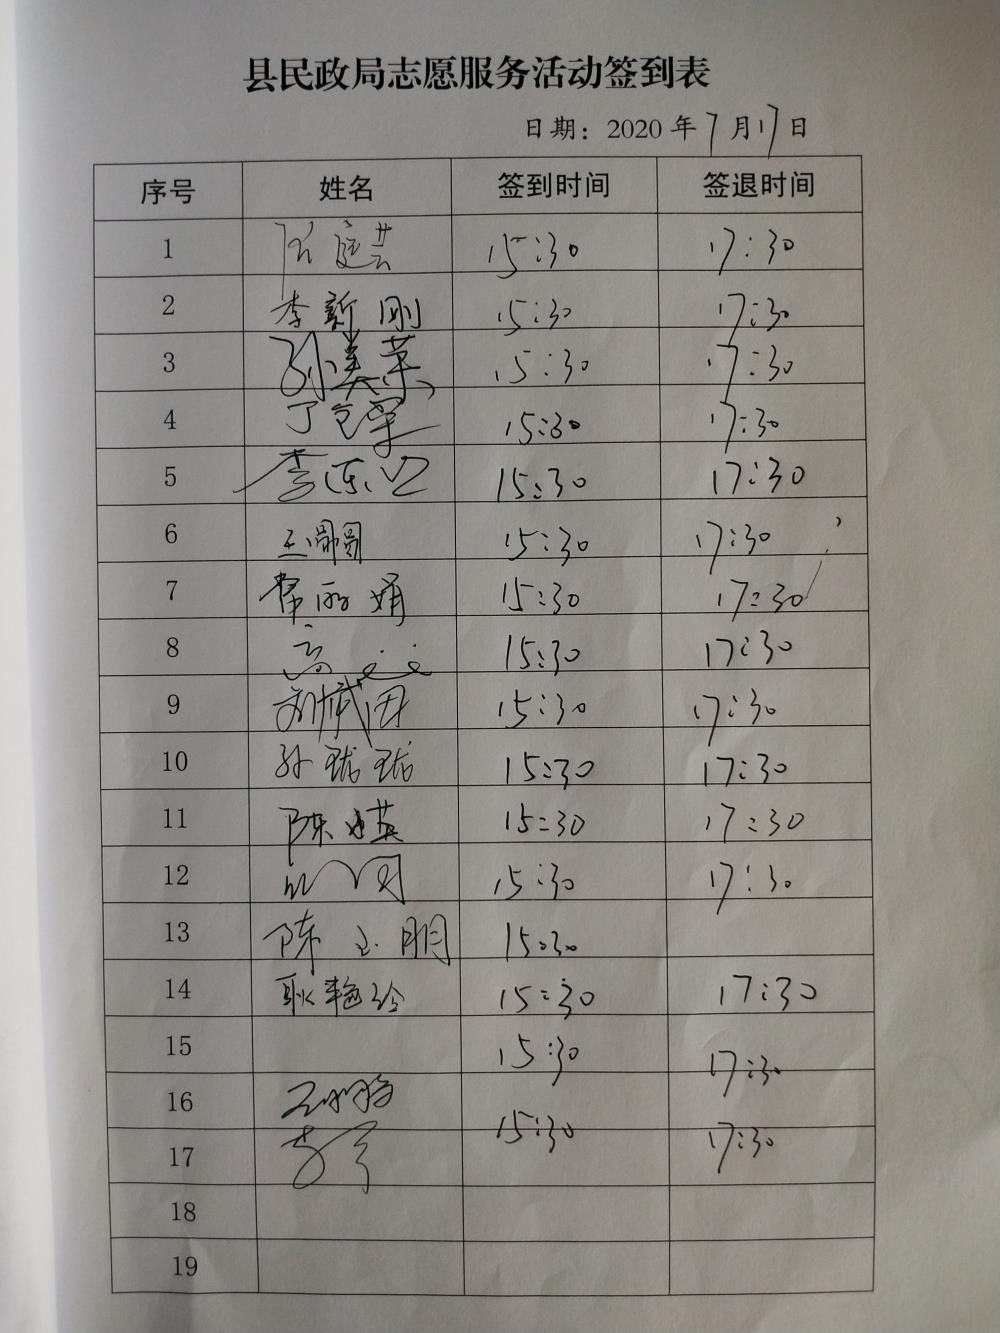 县民政局志愿服务活动签到表
日期：2020年7月17日
序号 姓名 签到时间 签退时间
1 15:30 17:30
2 李新刚 15:30 17:30
3 孙美荣 15:30 17:30
4 丁 军 15:30 17:30
5 李 15:30 17:30
6 王 15:30 17:30
7 丽娟 15:30 17:30
8 高 15:30 17:30
9 刘斌 15:30 17:30
10 孙珑珑 15:30 17:30
11 陈 英 15:30 17:30
12 15:30 17:30
13 陈玉朋 15:30
14 耿艳玲 15:30 17:30
15 15:30 17:30
16 王鹏 15:30 17:30
17 李
18
19